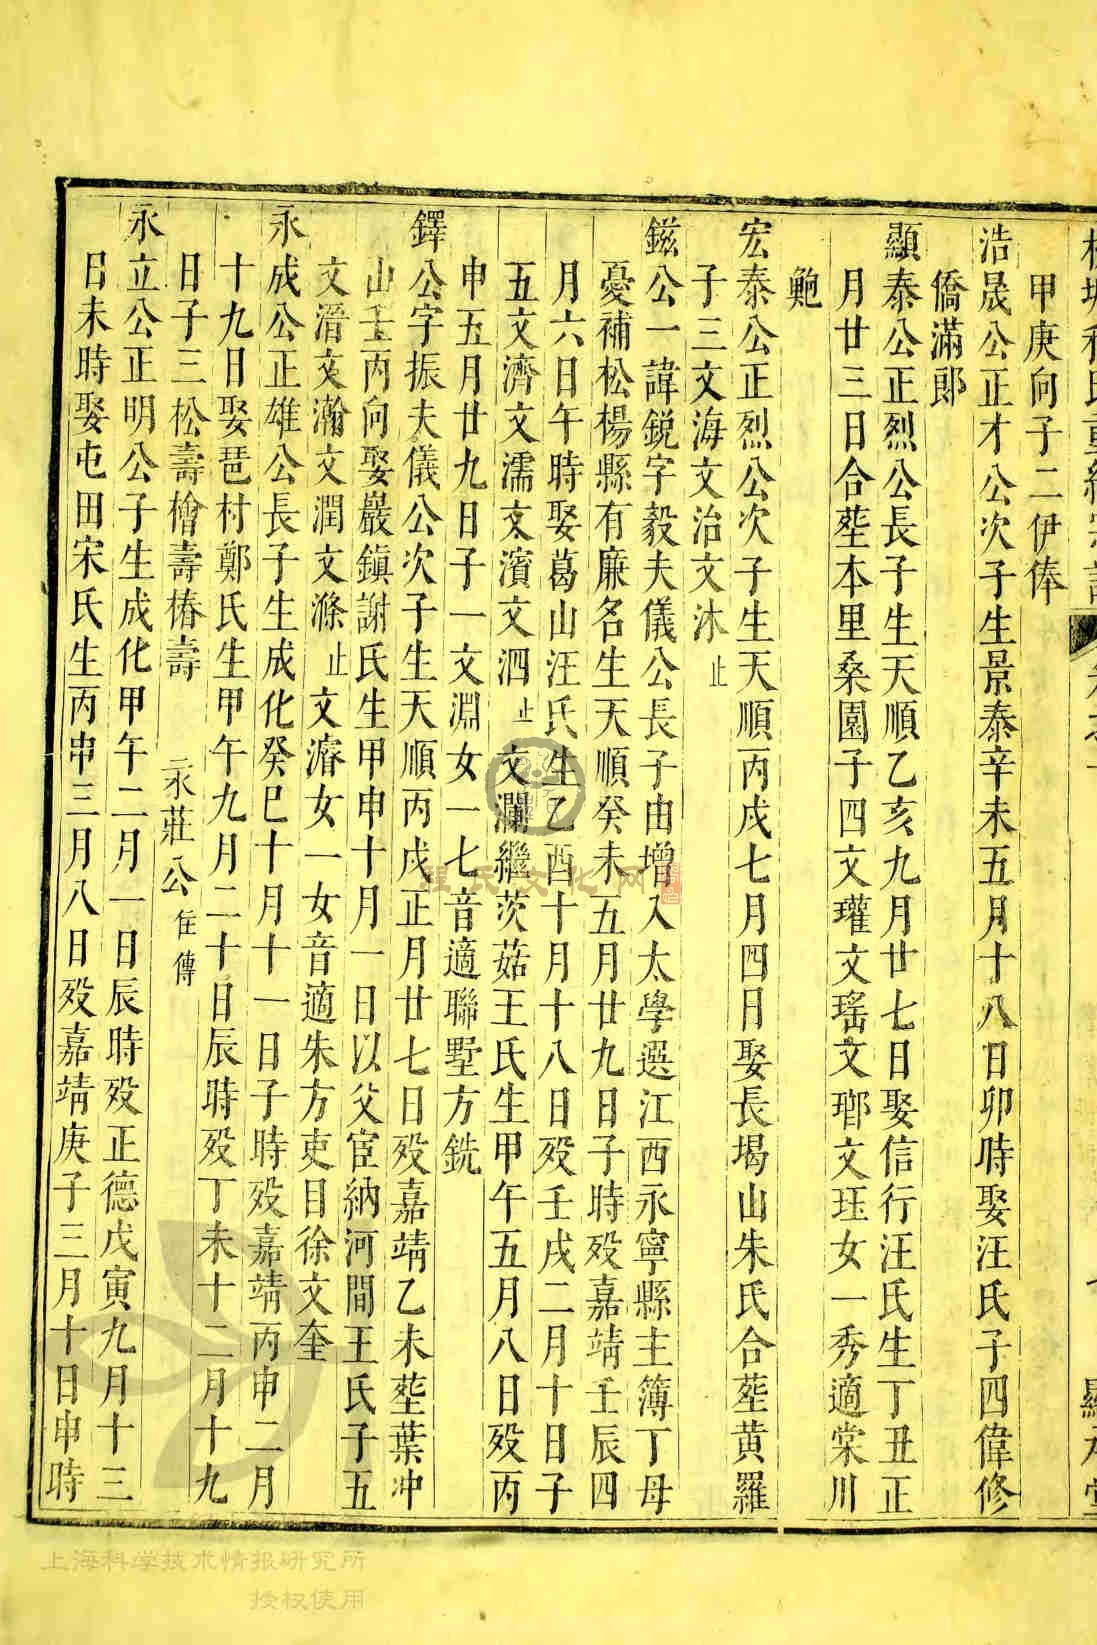 甲庚向子二伊俸
浩晟公正才公次子生景泰辛未五月十八日卯時娶汪氏子四偉修
僑滿郎
顯泰公正烈公長子生天順乙亥九月廿七日娶信行汪氏生丁丑正
月廿三日合塟本里桑園子四文瓘文瑤文瑯文珏女一秀適棠川
鮑
宏泰公正烈公次子生天順丙戌七月四日娶長塢山朱氏合塟黄羅
子三文海文治文沐止
鎡公一諱鋭字毅夫儀公長子由增入太學選江西永寧縣主簿丁母
憂補松楊縣有廉名生天順癸未五月廿九日子時殁嘉靖壬辰四
月六日午時娶葛山汪氏生乙酉十月十八日殁壬戌二月十日子
五文濟文濡文濱文泗止文瀾繼茨菇王氏生甲午五月八日殁丙
申五月廿九日子一文淵女一七音適聯墅方銑
鐸公字振夫儀公次子生天順丙戌正月廿七日殁嘉靖乙未塟葉冲
山壬丙向娶巖鎮謝氏生甲申十月一日以父宦納河間王氏子五
文溍文瀚文潤文滌止文濬女一女音適朱方吏目徐文奎
永成公正雄公長子生成化癸巳十月十一日子時殁嘉靖丙申二月
十九日娶琶村鄭氏生甲午九月二十日辰時殁丁未十二月十九
日子三松壽檜壽椿壽 永莊公住傳
永立公正明公子生成化甲午二月一日辰時殁正德戊寅九月十三
日未時娶屯田宋氏生丙申三月八日殁嘉靖庚子三月十日申時
程氏文化网
上海科学技术情报研究所
授权使用